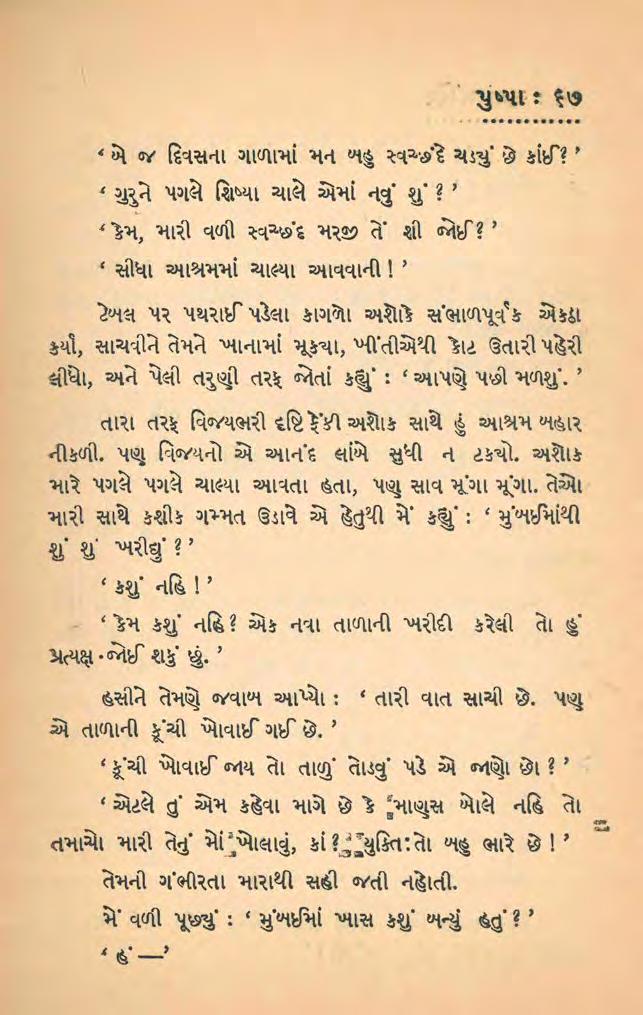 પુષ્પા : ૬૭
‘ બે જ દિવસના ગાળામાં મન બહુ સ્વચ્છંદે ચડ્યું છે કાંઈ? ’
‘ ગુરુને પગલે શિષ્યા ચાલે એમાં નવું શું ? ’
‘ કેમ, મારી વળી સ્વચ્છંદ મરજી તેં શી જોઈ? ’
‘ સીધા આશ્રમમાં ચાલ્યા આવવાની ! ’
ટેબલ પર પથરાઈ પડેલા કાગળો અશોકે સંભાળપૂર્વક એકઠા
કર્યા, સાચવીને તેમને ખાનામાં મૂક્યા, ખીંતીએથી કોટ ઉતારી પહેરી
લીધો, અને પેલી તરુણી તરફ જોતાં કહ્યું : ‘ આપણે પછી મળશું. ’
તારા તરફ વિજયભરી દૃષ્ટિ ફેંકી અશોક સાથે હું આશ્રમ બહાર
નીકળી. પણ વિજયનો એ આનંદ લાંબે સુધી ન ટક્યો. અશોક
મારે પગલે પગલે ચાલ્યા આવતા હતા, પણ સાવ મૂંગા મૂંગા. તેઓ
મારી સાથે કશીક ગમ્મત ઉડાવે એ હેતુથી મેં કહ્યું : ‘ મુંબઈમાંથી
શું શું ખરીદ્યું ? ’
‘ કશું નહિ ! ’
‘ કેમ કશું નહિ? એક નવા તાળાની ખરીદી કરેલી તો હું
પ્રત્યક્ષ જોઈ શકું છું. ’
હસીને તેમણે જવાબ આપ્યો : ‘ તારી વાત સાચી છે. પણ
એ તાળાની કૂંચી ખોવાઈ ગઈ છે. ’
‘ કૂંચી ખોવાઈ જાય તો તાળું તોડવું પડે એ જાણો છો ? ’
‘ એટલે તું એમ કહેવા માગે છે કે માણસ બોલે નહિ તો
તમાચો મારી તેનું મોં ખોલાવું, કાં ? યુક્તિ તો બહુ ભારે છે ! ’
તેમની ગંભીરતા મારાથી સહી જતી નહોતી.
મેં વળી પૂછ્યું : ‘ મુંબઈમાં ખાસ કશું બન્યું હતું ? ’
‘ હં — ’